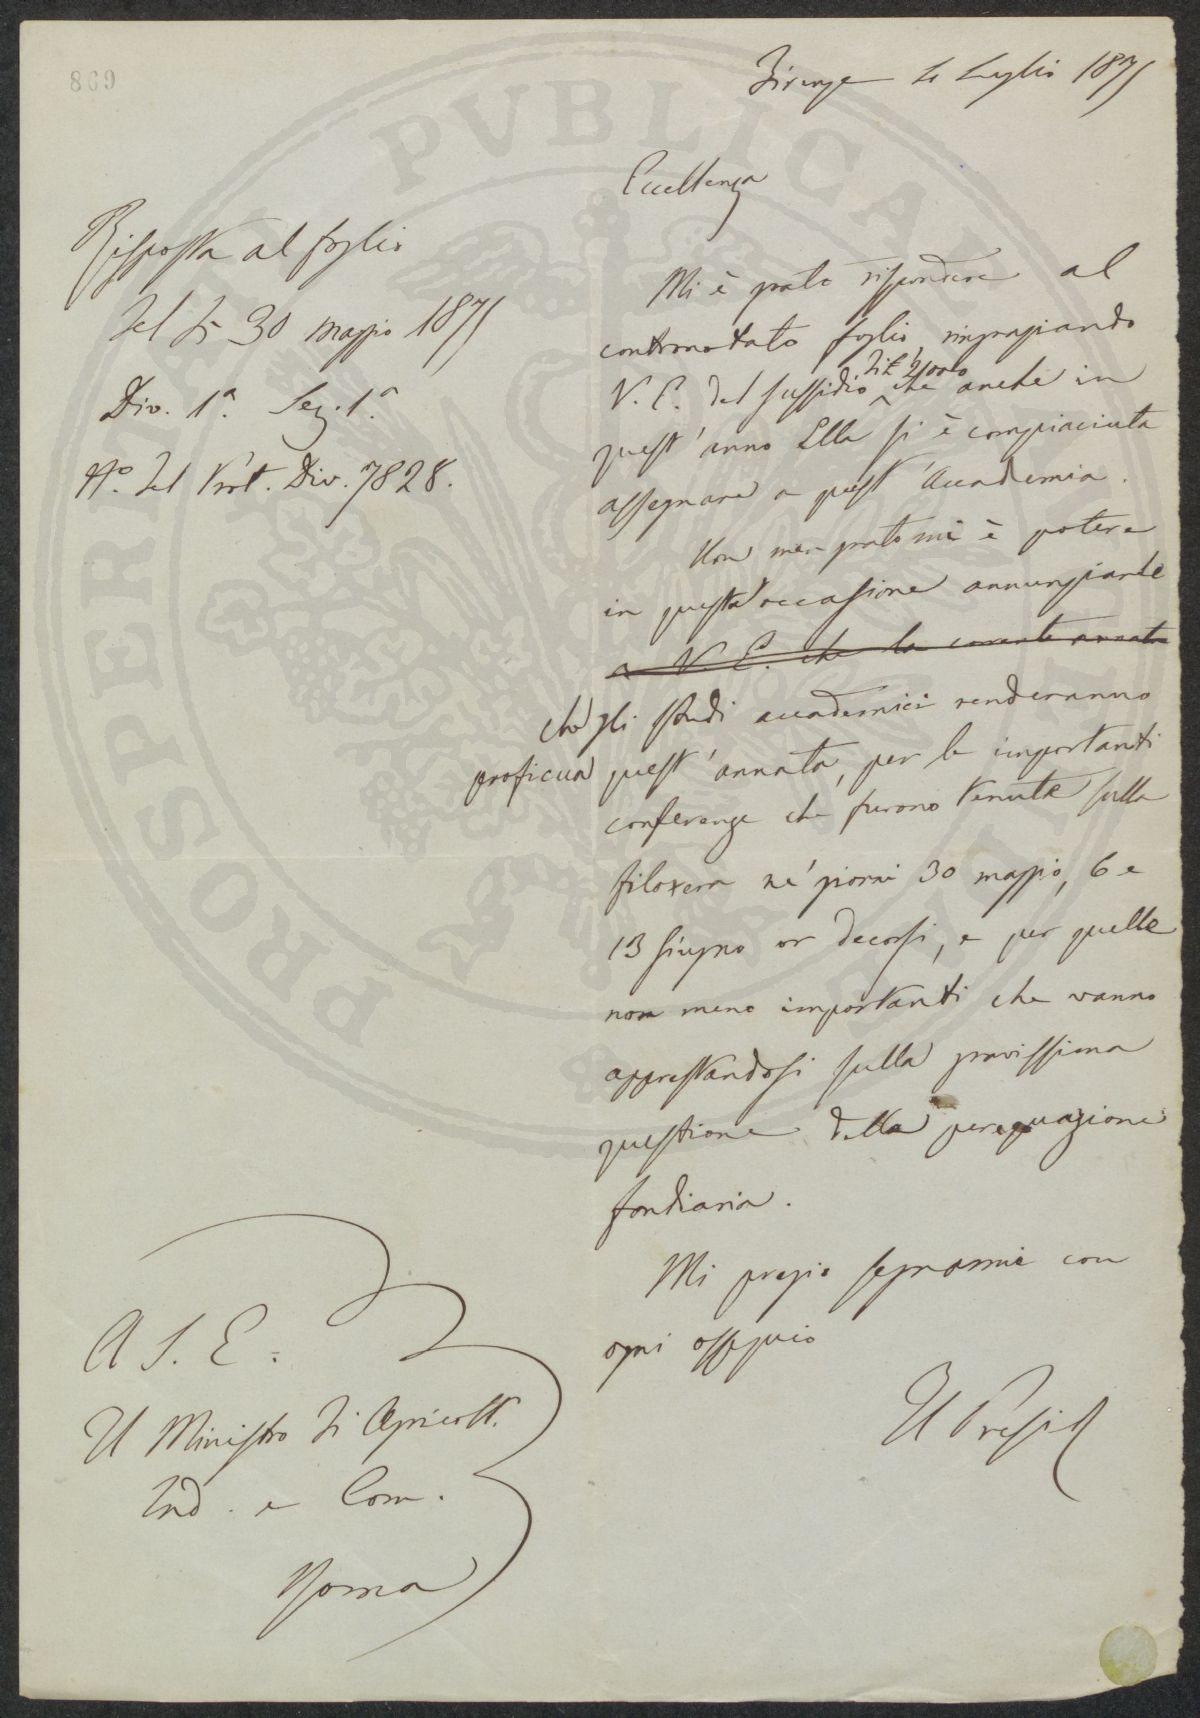 869
Firenze li Luglio 1875
Risposta al foglio
del dì 30 maggio 1875
Div. 1ª. Sez. 1.ª
Nº. del Prot. Div. 7828.
Eccellenza
Mi è grato rispondere al
contronotato foglio, ringraziando
V. E. del sussidio che anche in
di £ 2000
quest'anno Ella si è compiaciuta
assegnare a quest'Accademia.
Non men grato mi è potere
in questa occasione annunziarle
a V. E. che la corrente annata
che gli studi accademici renderanno
proficua quest'annata, per le importanti
conferenze che furono tenute sulla
filoxera ne' giorni 30 maggio, 6 e
13 Giugno or decorsi, e per quelle
non meno importanti che vanno
apprestandosi sulla gravissima
questione della perequazione
fondiaria.
Mi pregio segnarmi con
ogni ossequio
Il Presid
A S. E.
Il Ministro di Agricolt.
Ind. e Com.
Roma
PVBLICAE
PROSPERITATI